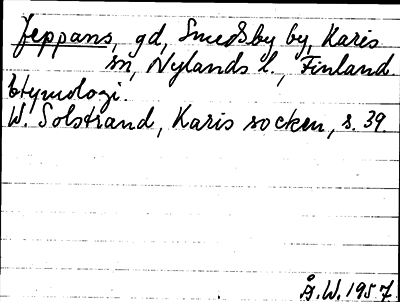 Jeppans, gd, Smedsby by, Karis
sn, Nylands l., Finland.
Etymologi.
W. Solstrand, Karis socken, s. 39.
Å. W. 1957.